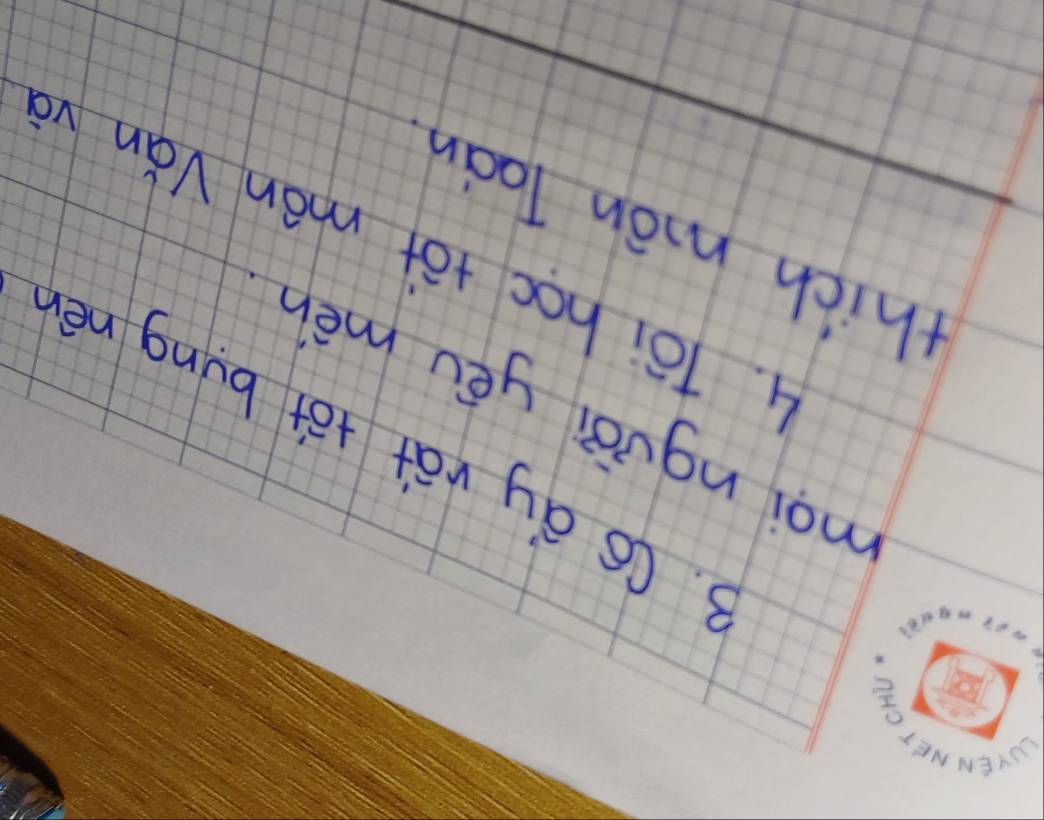 LUYỆN NÉT CHỮ
3. Cô ấy rất tốt bụng nên
mọi người yêu mến.
4. Tôi học tốt môn Văn và
thích môn Toán.